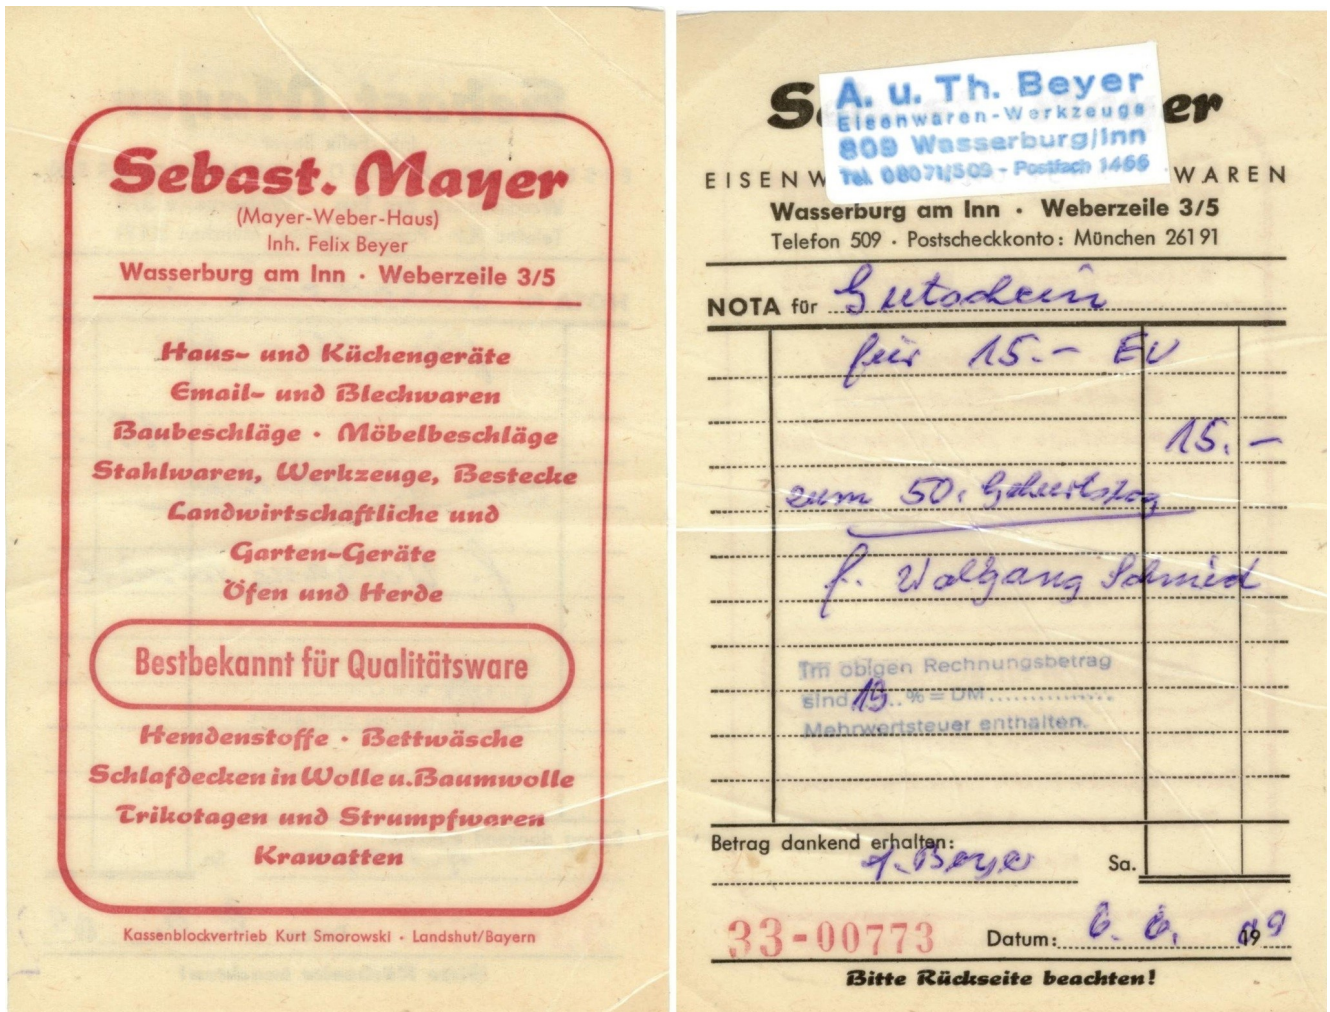 Sebast. Mayer
(Mayer-Weber-Haus)
Inh. Felix Beyer
Wasserburg am Inn · Weberzeile 3/5
Haus- und Küchengeräte
Email- und Blechwaren
Baubeschläge · Möbelbeschläge
Stahlwaren, Werkzeuge, Bestecke
Landwirtschaftliche und
Garten-Geräte
Öfen und Herde
Bestbekannt für Qualitätsware
Hemdenstoffe · Bettwäsche
Schlafdecken in Wolle u. Baumwolle
Trikotagen und Strumpfwaren
Krawatten
Kassenblockvertrieb Kurt Smorowski · Landshut/Bayern
A. u. Th. Beyer
Eisenwaren-Werkzeuge
809 Wasserburg/Inn
Tel. 08071/509 - Postfach 1466
Wasserburg am Inn · Weberzeile 3/5
Telefon 509 · Postscheckkonto: München 26191
NOTA für Gutschein
für 15.- EU
15.-
zum 50. Geburtstag
f. Wolfgang Schmied
Im obigen Rechnungsbetrag
sind 19 % = DM
Mehrwertsteuer enthalten.
Betrag dankend erhalten:
A. Beyer
Sa.
33-00773 Datum: 6. 6. 09
Bitte Rückseite beachten!